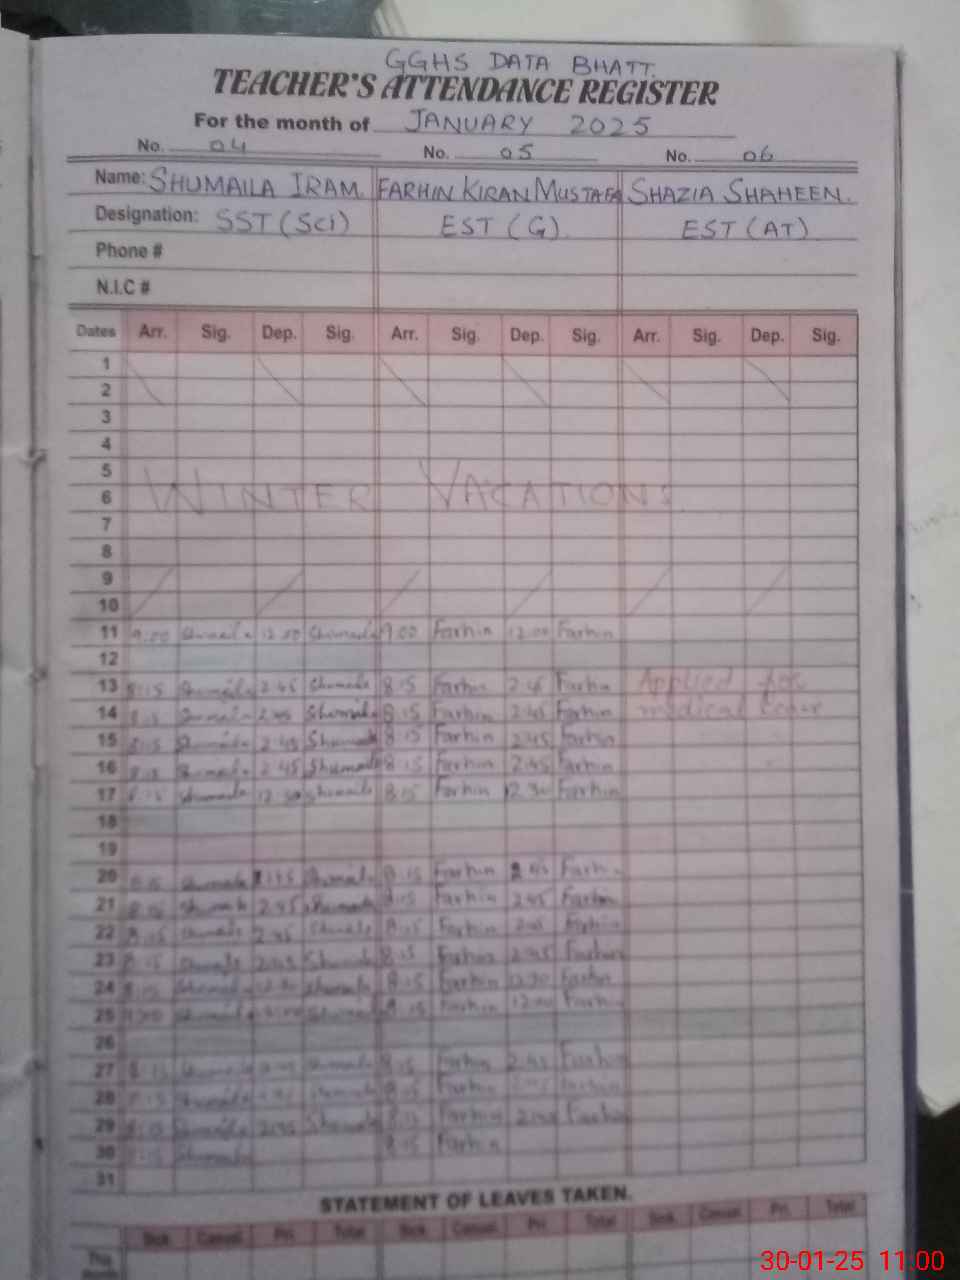 GGHS DATA BHATT.
TEACHER'S ATTENDANCE REGISTER
For the month of JANUARY 2025
No. 04 No. 05 No. 06
Name: SHUMAILA IRAM. FARHIN KIRAN MUSTAFA SHAZIA SHAHEEN.
Designation: SST (Sci) EST (G). EST (AT)
Phone #
N.I.C #
Dates Arr. Sig. Dep. Sig. Arr. Sig. Dep. Sig. Arr. Sig. Dep. Sig.
1
2
3
4
5
6 WINTER VACATIONS
7
8
9
10
11 9:00 Shumaila 12:00 Shumaila 9:00 Farhin 12:00 Farhin
12
13 8:15 Shumaila 2:45 Shumaila 8:15 Farhin 2:45 Farhin Applied for
14 8:15 Shumaila 2:45 Shumaila 8:15 Farhin 2:45 Farhin medical leave
15 8:15 Shumaila 2:45 Shumaila 8:15 Farhin 2:45 Farhin
16 8:15 Shumaila 2:45 Shumaila 8:15 Farhin 2:45 Farhin
17 8:15 Shumaila 12:30 Shumaila 8:15 Farhin 12:30 Farhin
18
19
20 8:15 Shumaila Shumaila 8:15 Farhin 2:45 Farhin
21 8:15 Shumaila 2:45 Shumaila 8:15 Farhin 2:45 Farhin
22 8:15 Shumaila 2:45 Shumaila 8:15 Farhin 2:45 Farhin
23 8:15 Shumaila 2:45 Shumaila 8:15 Farhin 2:45 Farhin
24 8:15 Shumaila Shumaila 8:15 Farhin Farhin
25 Shumaila Shumaila 8:15 Farhin 12:00 Farhin
26
27 8:15 Shumaila Shumaila 8:15 Farhin 2:45 Farhin
28 8:15 Shumaila Shumaila 8:15 Farhin 2:45 Farhin
29 8:15 Shumaila 2:45 Shumaila 8:15 Farhin 2:45 Farhin
30 8:15 Shumaila 8:15 Farhin
31
STATEMENT OF LEAVES TAKEN.
Sick Casual Pri. Total Sick Casual Pri. Total Sick Casual Pri. Total
This
30-01-25 11:00